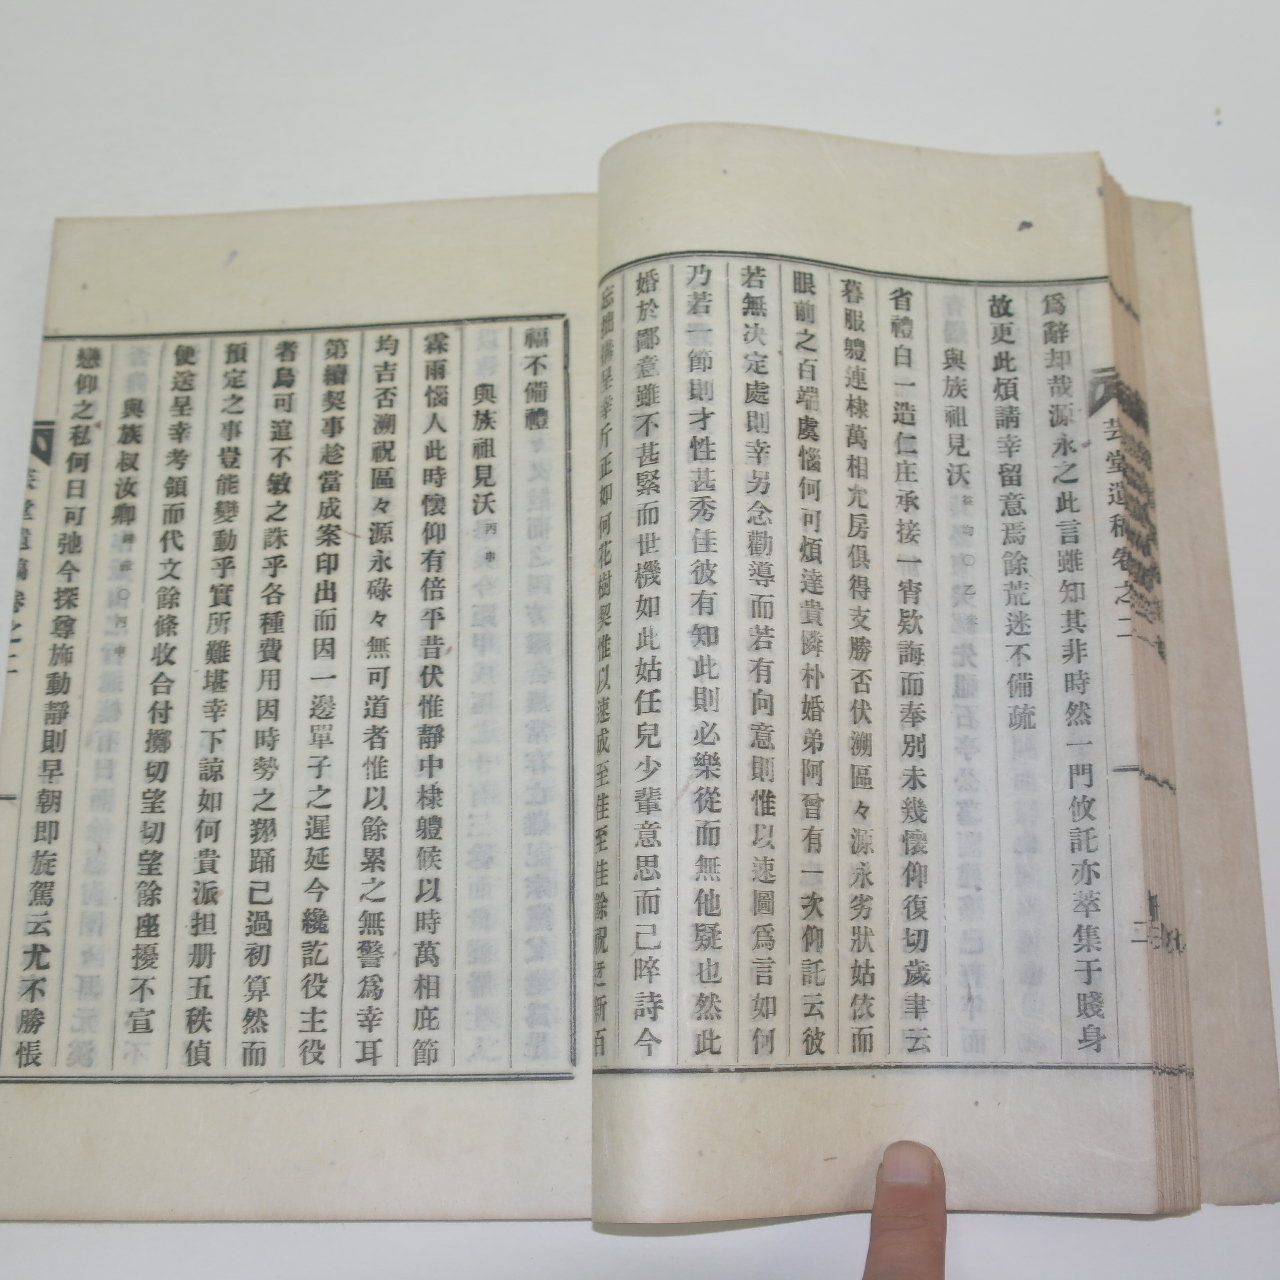 芸堂遺稿卷之二
二
爲辭却哉源永之此言雖知其非時然一門攸託亦萃集于賤身
故更此煩請幸留意焉餘荒迷不備疏
與族祖見沃
省禮白一造仁庄承接一宵欵誨而奉別未幾懷仰復切歲聿云
暮服軆連棣萬相允房俱得支勝否伏溯區々源永劣狀姑依而
眼前之百端虞惱何可煩達貴隣朴婚弟阿曾有一次仰託云彼
若無決定處則幸另念勸導而若有向意則惟以速圖爲言如何
乃若一節則才性甚秀佳彼有知此則必樂從而無他疑也然此
婚於鄙意雖不甚緊而世機如此姑任兒少輩意思而已晬詩今
忘拙搆呈幸斤正如何花樹契惟以速成至佳至佳餘祝迓新百
福不備禮
與族祖見沃 丙申
霖雨惱人此時懷仰有倍平昔伏惟靜中棣軆候以時萬相庇節
均吉否溯祝區々源永碌々無可道者惟以餘累之無警爲幸耳
第續契事趁當成案印出而因一邊單子之遲延今纔訖役主役
者烏可逭不敏之誅乎各種費用因時勢之猢踊已過初算然而
預定之事豈能變動乎實所難堪幸下諒如何貴派担册五秩偵
便送呈幸考領而代文餘條收合付擲切望切望餘座擾不宣
與族叔汝卿
戀仰之私何日可弛今探尊旆動靜則早朝即旋駕云尤不勝悵